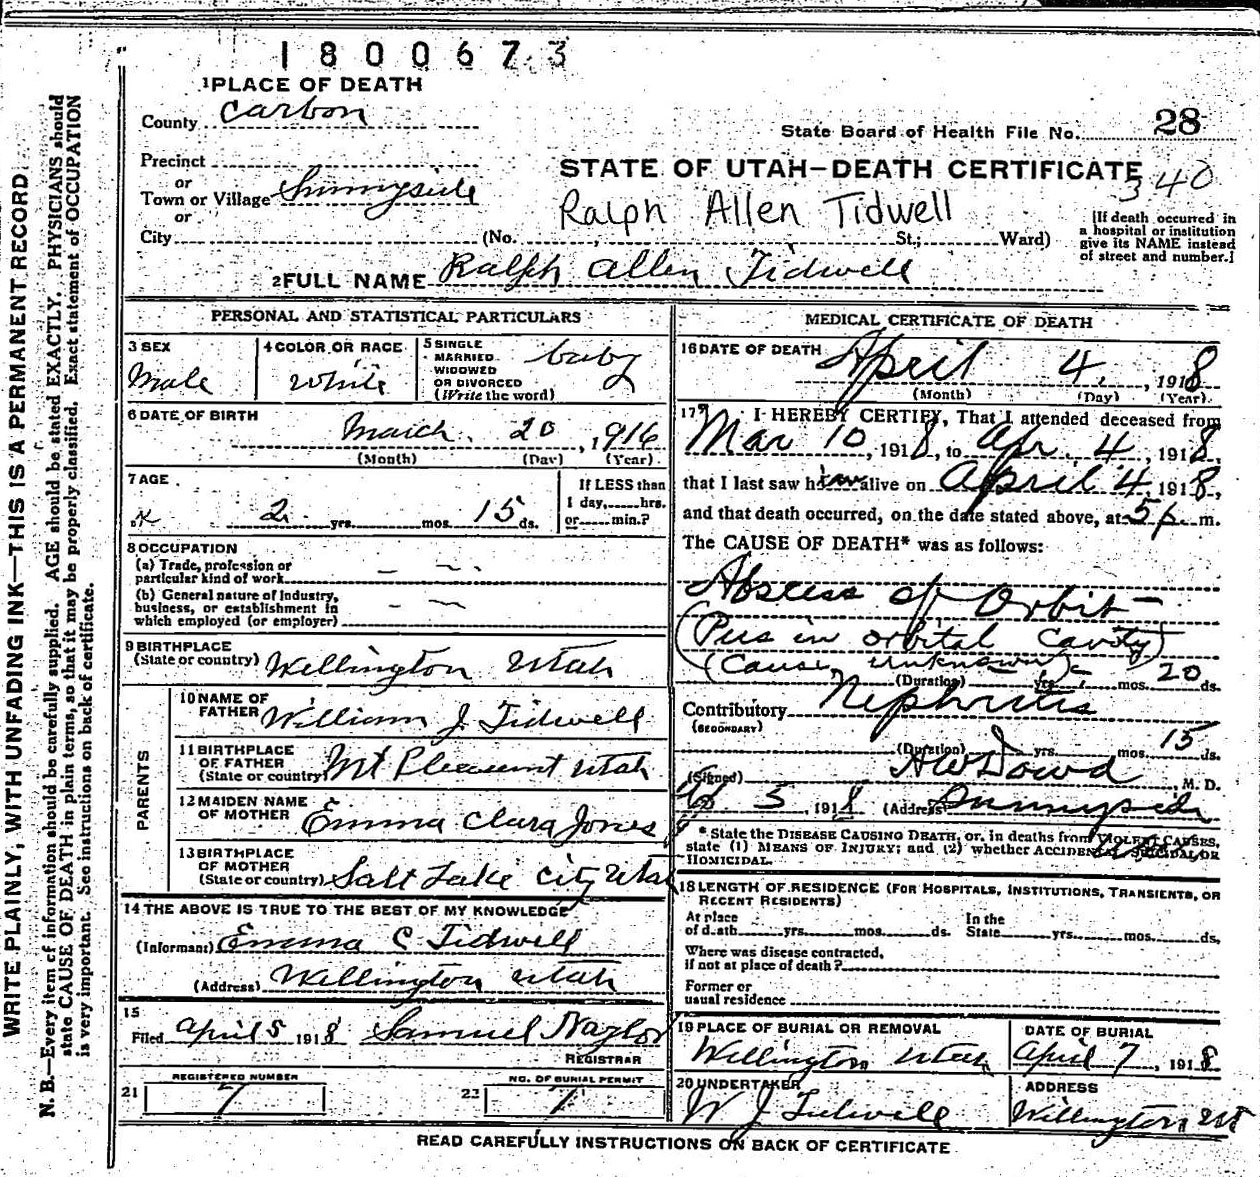 1800673
1 PLACE OF DEATH
County Carbon
28
State Board of Health File No.
Precinct
STATE OF UTAH—DEATH CERTIFICATE
340
or
Town or Village Sunnyside
or
Ralph Allen Tidwell
City (No. St.; Ward)
[If death occurred in
a hospital or institution
give its NAME instead
of street and number.]
2 FULL NAME Ralph Allen Tidwell
PERSONAL AND STATISTICAL PARTICULARS
3 SEX
Male
4 COLOR OR RACE
White
5 SINGLE
MARRIED
WIDOWED
OR DIVORCED
(Write the word)
baby
6 DATE OF BIRTH
March 20, 1916
(Month) (Day) (Year)
7 AGE
2 yrs. mos. 15 ds.
If LESS than
1 day, hrs.
or min.?
8 OCCUPATION
(a) Trade, profession or
particular kind of work
(b) General nature of industry,
business, or establishment in
which employed (or employer)
9 BIRTHPLACE
(State or country) Wellington Utah
PARENTS
10 NAME OF
FATHER William J Tidwell
11 BIRTHPLACE
OF FATHER
(State or country) Mt Pleasant Utah
12 MAIDEN NAME
OF MOTHER Emma Clara Jones
13 BIRTHPLACE
OF MOTHER
(State or country) Salt Lake City Utah
14 THE ABOVE IS TRUE TO THE BEST OF MY KNOWLEDGE
(Informant) Emma C Tidwell
(Address) Wellington Utah
15
Filed April 5 1918 Samuel Naylor
REGISTRAR
REGISTERED NUMBER
21 7
NO. OF BURIAL PERMIT
22 7
MEDICAL CERTIFICATE OF DEATH
16 DATE OF DEATH April 4, 1918
(Month) (Day) (Year)
17 I HEREBY CERTIFY, That I attended deceased from
Mar 10, 1918, to Apr. 4, 1918,
that I last saw him alive on April 4, 1918,
and that death occurred, on the date stated above, at 5 p. m.
The CAUSE OF DEATH* was as follows:
Abscess of Orbit —
(Pus in orbital cavity)
(Cause, unknown)
(Duration) yrs. mos. 20 ds.
Contributory Nephritis
(SECONDARY)
(Duration) yrs. mos. 15 ds.
(Signed) A W Dowd, M. D.
5 1918 (Address) Sunnyside
* State the DISEASE CAUSING DEATH, or, in deaths from VIOLENT CAUSES,
state (1) MEANS OF INJURY; and (2) whether ACCIDENTAL, SUICIDAL OR
HOMICIDAL.
18 LENGTH OF RESIDENCE (FOR HOSPITALS, INSTITUTIONS, TRANSIENTS, OR
RECENT RESIDENTS)
At place
of death yrs. mos. ds.
In the
State yrs. mos. ds.
Where was disease contracted,
if not at place of death?
Former or
usual residence
19 PLACE OF BURIAL OR REMOVAL
Wellington Utah
DATE OF BURIAL
April 7, 1918
20 UNDERTAKER
W J Tidwell
ADDRESS
Wellington Ut
READ CAREFULLY INSTRUCTIONS ON BACK OF CERTIFICATE
WRITE PLAINLY, WITH UNFADING INK—THIS IS A PERMANENT RECORD
N. B.—Every item of information should be carefully supplied. AGE should be stated EXACTLY. PHYSICIANS should
state CAUSE OF DEATH in plain terms, so that it may be properly classified. Exact statement of OCCUPATION
is very important. See instructions on back of certificate.